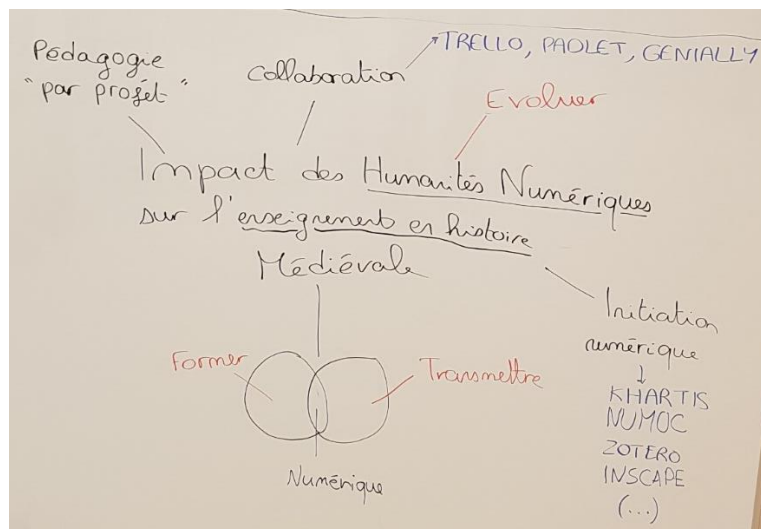 Pédagogie
"par projet"
Collaboration
TRELLO, PADLET, GENIALLY
Evoluer
Impact des Humanités Numériques
sur l'enseignement en histoire
Médiévale
Former
Transmettre
Numérique
Initiation
numérique
KHARTIS
NUMOC
ZOTERO
INSCAPE
(...)